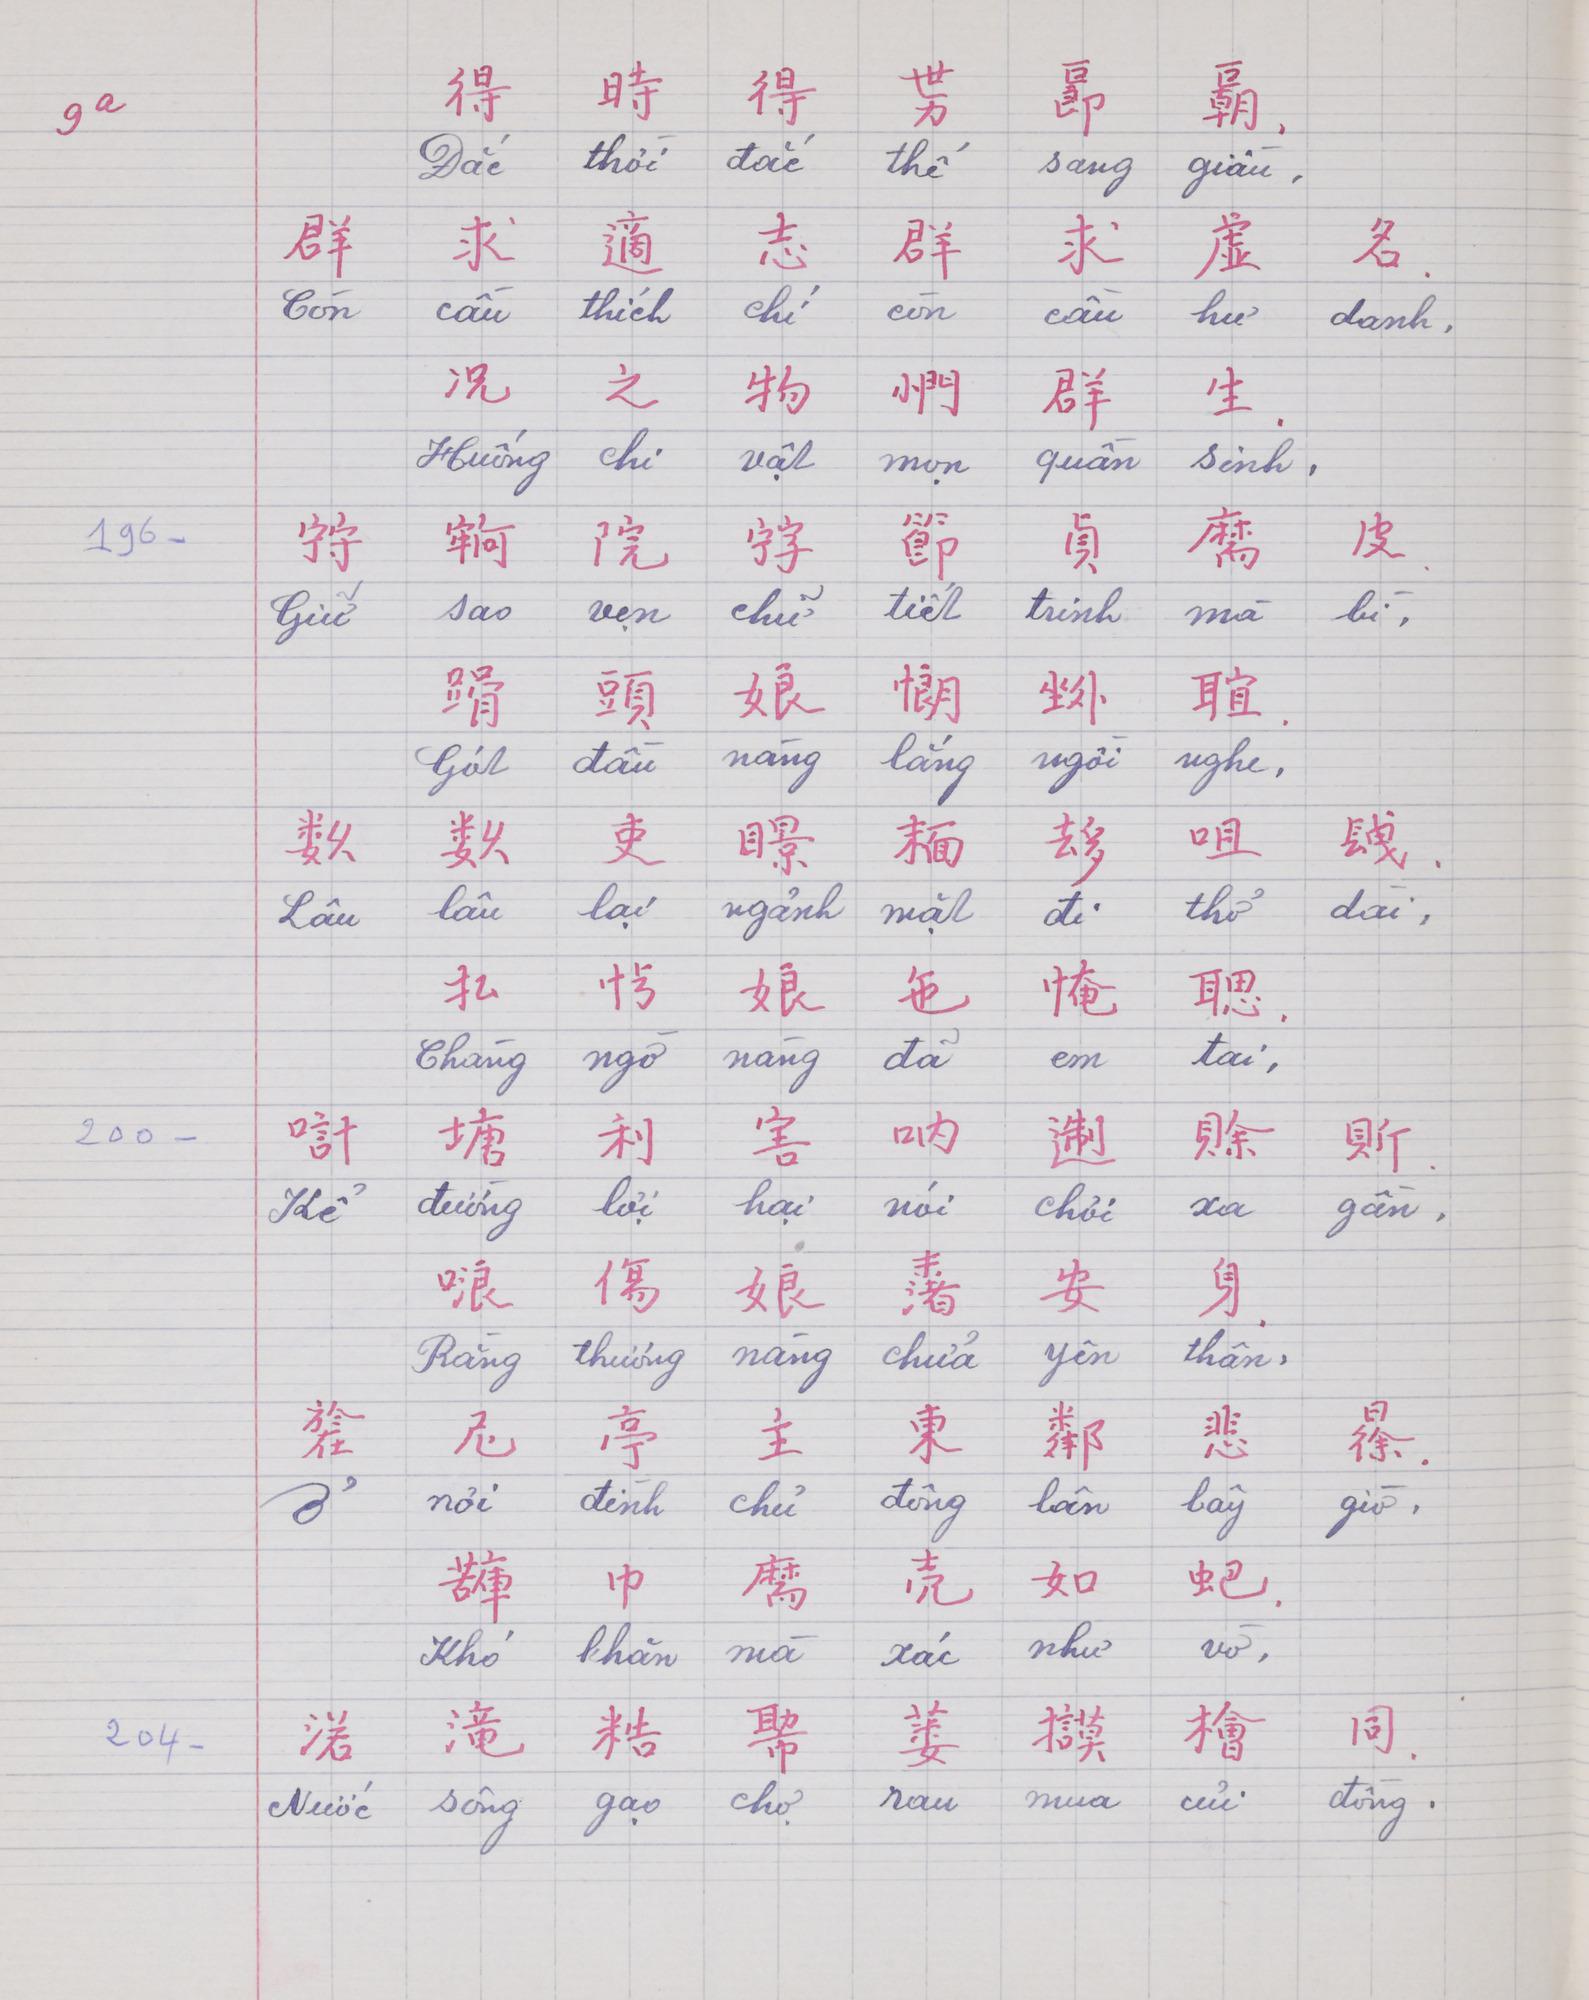 9ª
得 時 得 势 𨛦 覇.
Đắc thời đắc thế sang giầu,
群 求 適 志 群 求 虚 名.
Còn cầu thích chí còn cầu hư danh,
况 之 物 㦖 群 生.
Huống chi vật mọn quần sinh,
196-
𡨹 𡨺 院 𡨸 節 貞 麿 皮.
Giữ sao vẹn chữ tiết trinh mà bì,
頭 娘 𫻎 𫮋 𦖻.
Gót đầu nàng lắng ngồi nghe,
数 数 吏 𥋓 𩈘 𠫾 咀 𨱽.
Lâu lâu lại ngảnh mặt đi thở dài,
払 㤕 娘 㐌 㤿 聦.
Chàng ngờ nàng đã em tai,
200-
計 塘 利 害 呐 𨔾 賒 𧵆.
Kể đường lợi hại nói chòi xa gần,
哴 傷 娘 渚 安 身.
Rằng thương nàng chửa yên thân,
𣄒 尼 亭 主 東 鄰 悲 𣇞.
Ở nơi đình chủ đông lân bây giờ,
巾 麿 壳 如 蚆.
Khó khăn mà xác như vờ,
204-
渃 滝 𥽌 𢄂 蔞 𢷮 檜 同.
Nước sông gạo chợ rau mua củi đồng.